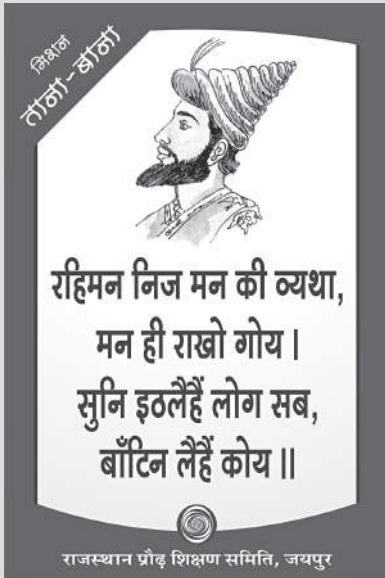 मिशन
ताना-बाना
रहिमन निज मन की व्यथा,
मन ही राखो गोय।
सुनि इठलैहैं लोग सब,
बाँटिन लैहैं कोय॥
राजस्थान प्रौढ़ शिक्षण समिति, जयपुर